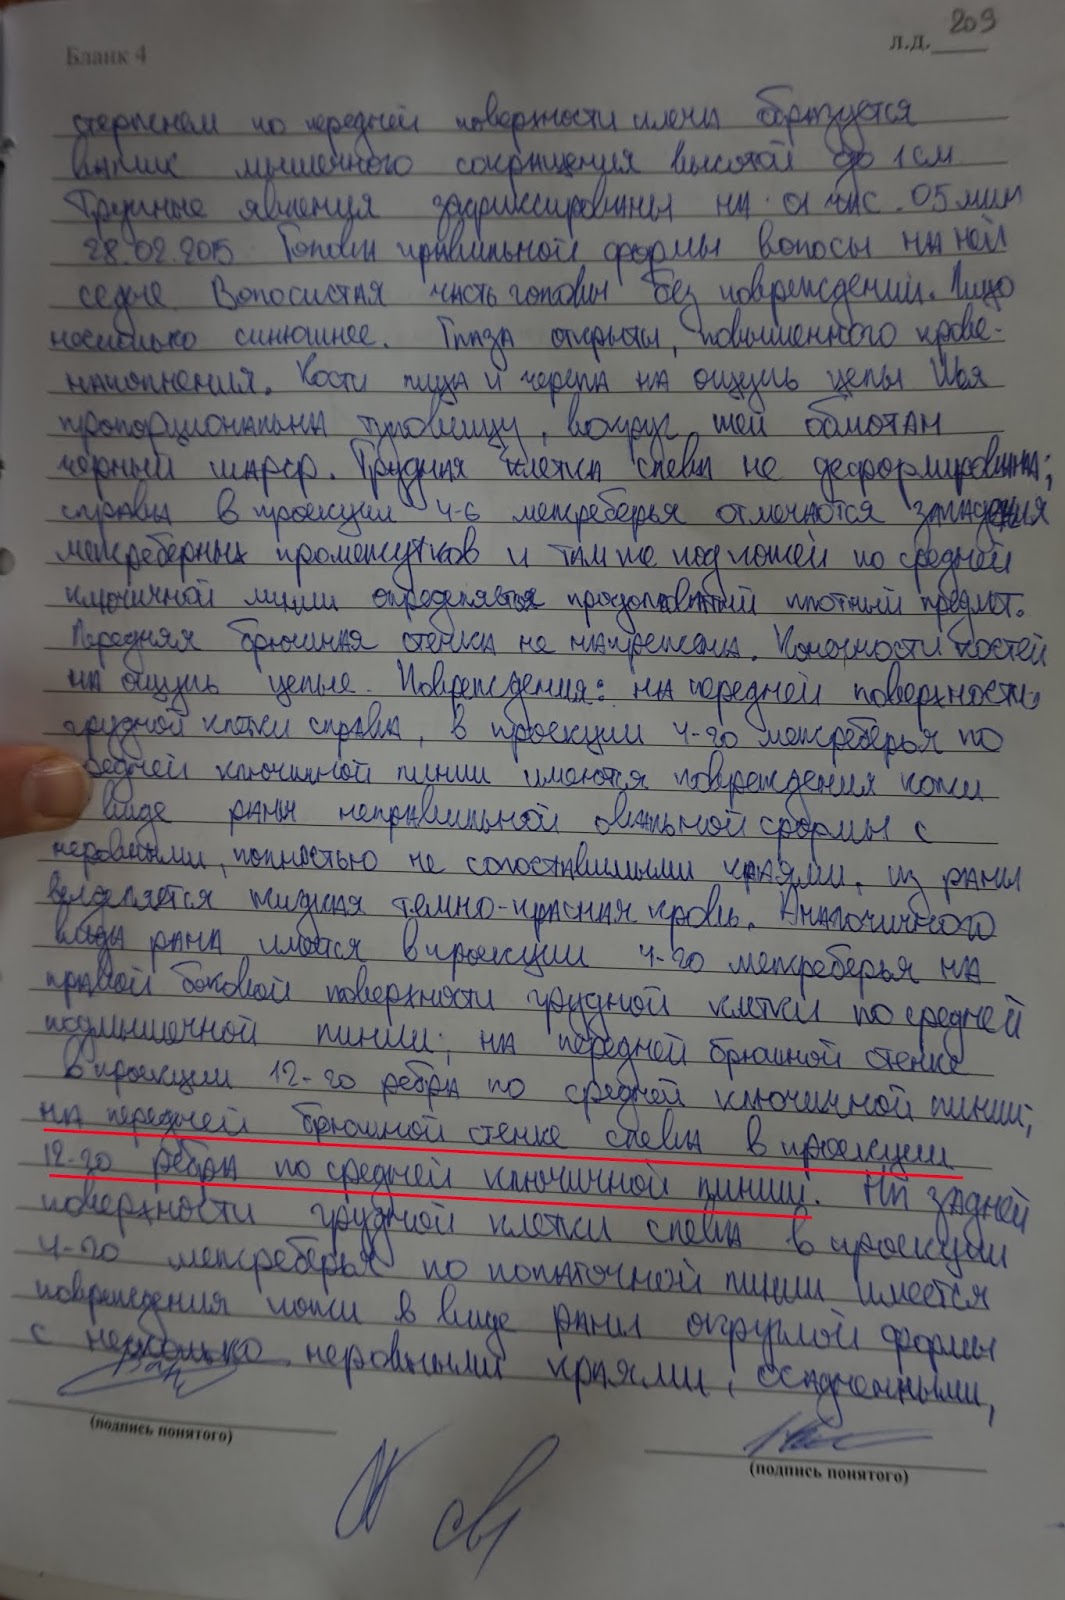 Бланк 4
л.д. 209
стержнем по передней поверхности плеча образуется
валик мышечного сокращения высотой до 1 см
Трупные явления зафиксированы на 01 час. 05 мин
28.02.2015 Голова правильной формы волосы на ней
седые. Волосистая часть головы без повреждений. Лицо
несколько синюшнее. Глаза открыты, повышенного крове-
наполнения. Кости лица и черепа на ощупь целы Шея
пропорциональна туловищу, вокруг шеи обмотан
черный шарф. Грудная клетка слева не деформирована;
справа в проекции 4-6 межреберья отмечаются западения
межреберных промежутков и там же под кожей по средней
ключичной линии определяется продолговатый плотный предмет.
Передняя брюшная стенка не напряжена. Конечности костей
на ощупь целые. Повреждения: на передней поверхности
грудной клетки справа, в проекции 4-го межреберья по
редней ключичной линии имеются повреждения кожи
виде раны неправильной овальной формы с
неровными, полностью не сопоставимыми краями, из раны
выделяется жидкая темно-красная кровь. Аналогичного
вида рана имеется в проекции 4-го межреберья на
правой боковой поверхности грудной клетки по средней
подмышечной линии; на передней брюшной стенке
в проекции 12-го ребра по средней ключичной линии;
на передней брюшной стенке слева в проекции
12-го ребра по средней ключичной линии. На задней
поверхности грудной клетки слева в проекции
4-го межреберья по лопаточной линии имеется
повреждения кожи в виде раны округлой формы
с несколько неровными краями, осадненными,
(подпись понятого)
(подпись понятого)